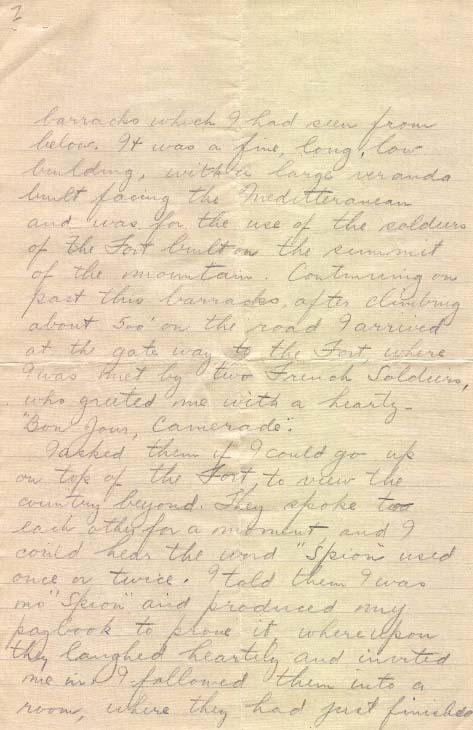 2
barracks which I had seen from
below. It was a fine, long, low
building, with a large veranda
built facing the Meditteranean
and was for the use of the soldiers
of the Fort built on the summit
of the mountain. Continuing on
past this barracks, after climbing
about 500' on the road I arrived
at th gate way to the Fort, where
I was met by two French Soldiers,
who greeted me with a hearty-
"Bon Jour, Camerade".
I asked them if I could go up
on top of the Fort, to view the
country beyond. They spoke to
each other for a moment and I
could hear the word "Spion" used
once or twice. I told them I was
no "Spion" and produced my
paybook to prove it, whereupon
they laughed heartily and invited
me in. I followed them into a
room, where they had just finished